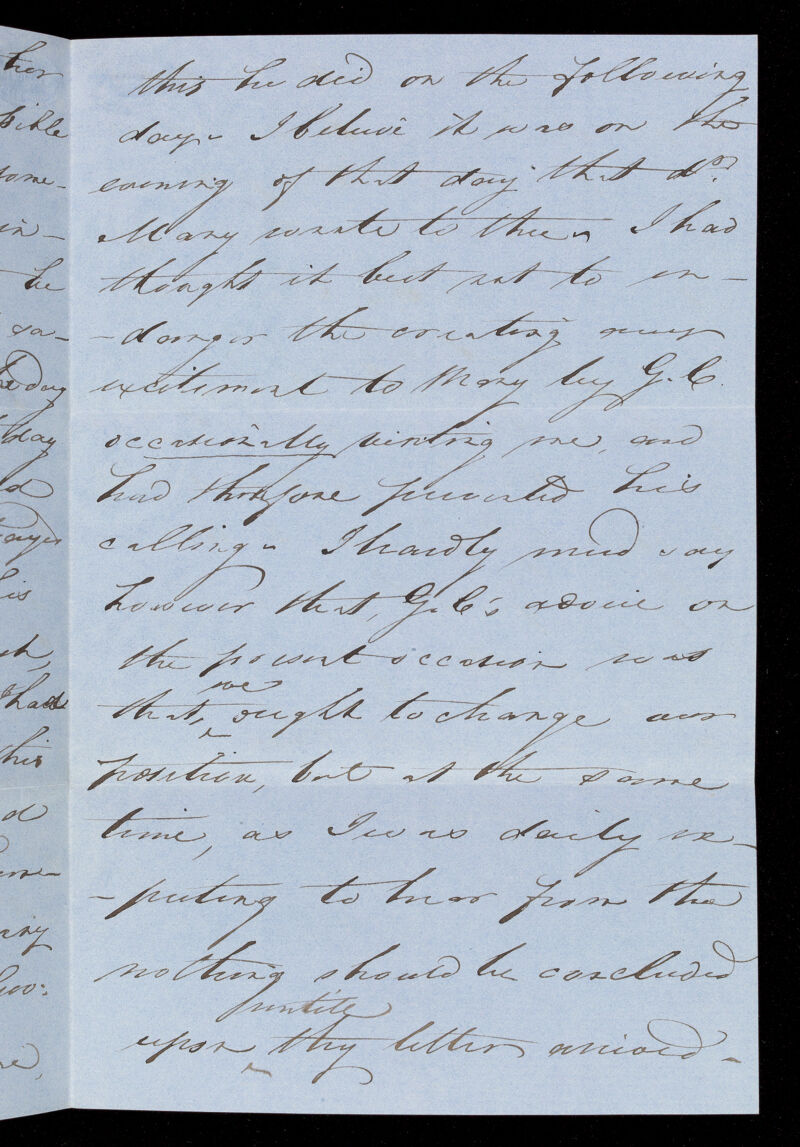 ther
sible
some-
in-
he
sa-
he day
day
d
days
his
had
this
d
me-
ary
re,
this he did on the following
day - I believe it was on the
evening of that day that dr.
Mary wrote to thee - I had
thought it best not to en-
-danger the creating any
excitement to Mary by G. C.
occasionally visiting me, and
had therefore prevented his
calling - I hardly need say
however that, G. C's advice on
the present occasion was
that, we ought to change our
position, but at the same
time, as I was daily ex-
-pecting to hear from thee
nothing should be concluded
upon untill thy letter arrived -